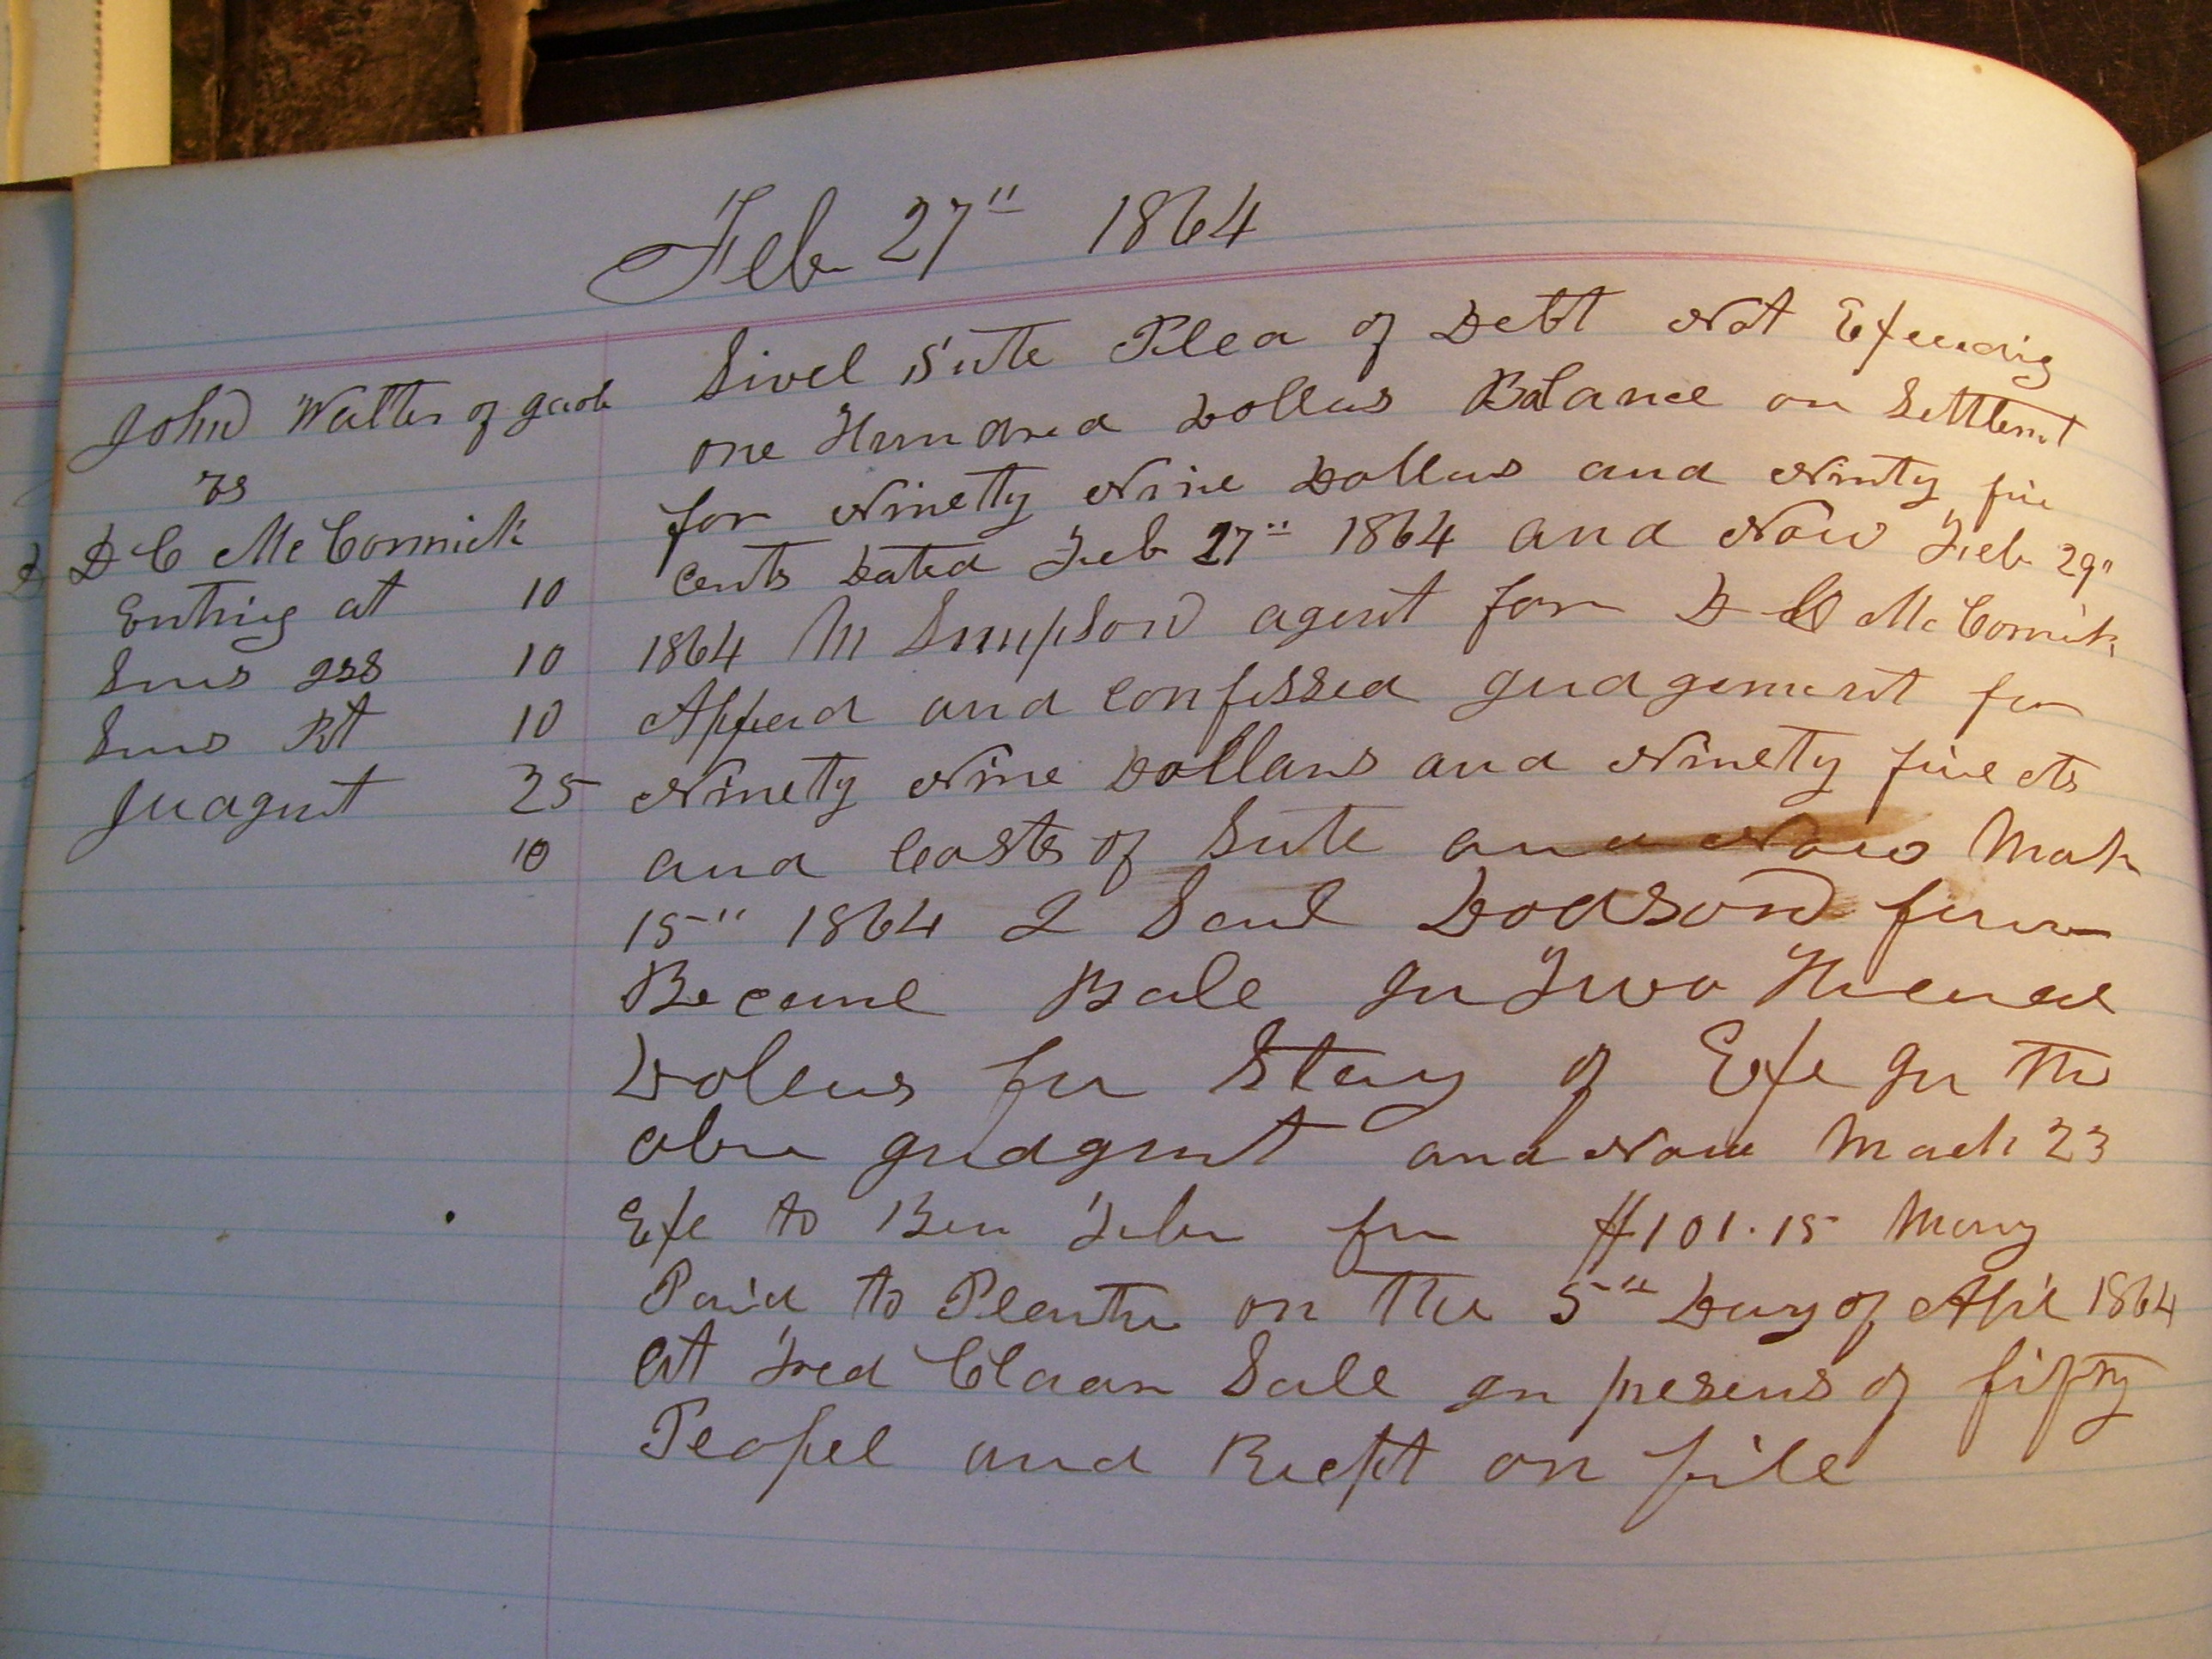 Feb 27" 1864
John Walter of gacob
vs
D C McCormick
Entrig at 10
Sums 10
Sums Rt 10
Judgmt 25
10
Sivel Sute Plea of Debt Not Exeedig
one Hundred Dollars Balance on Settlemt
for Ninetty Nine Dollars and Ninty five
cents Dated Feb 27" 1864 and Now Feb 29"
1864 M Simpson agent for D C McCormick
Appeard and confessed gudgement for
Ninety Nine Dollars and Ninety five cts
and Costs of Sute and Now Mach
15" 1864 I Saml Dodson
Became Bale gn Two Hundred
Dolars for Stay of Exe gn the
abve gudgmt and Now Mach 23
Exe to Ben for $101.15 Mony
Paid to Plentive on the 5th Day of Apil 1864
at Fred Claar Sale gn presens of fifty
Peopel and Riept on file